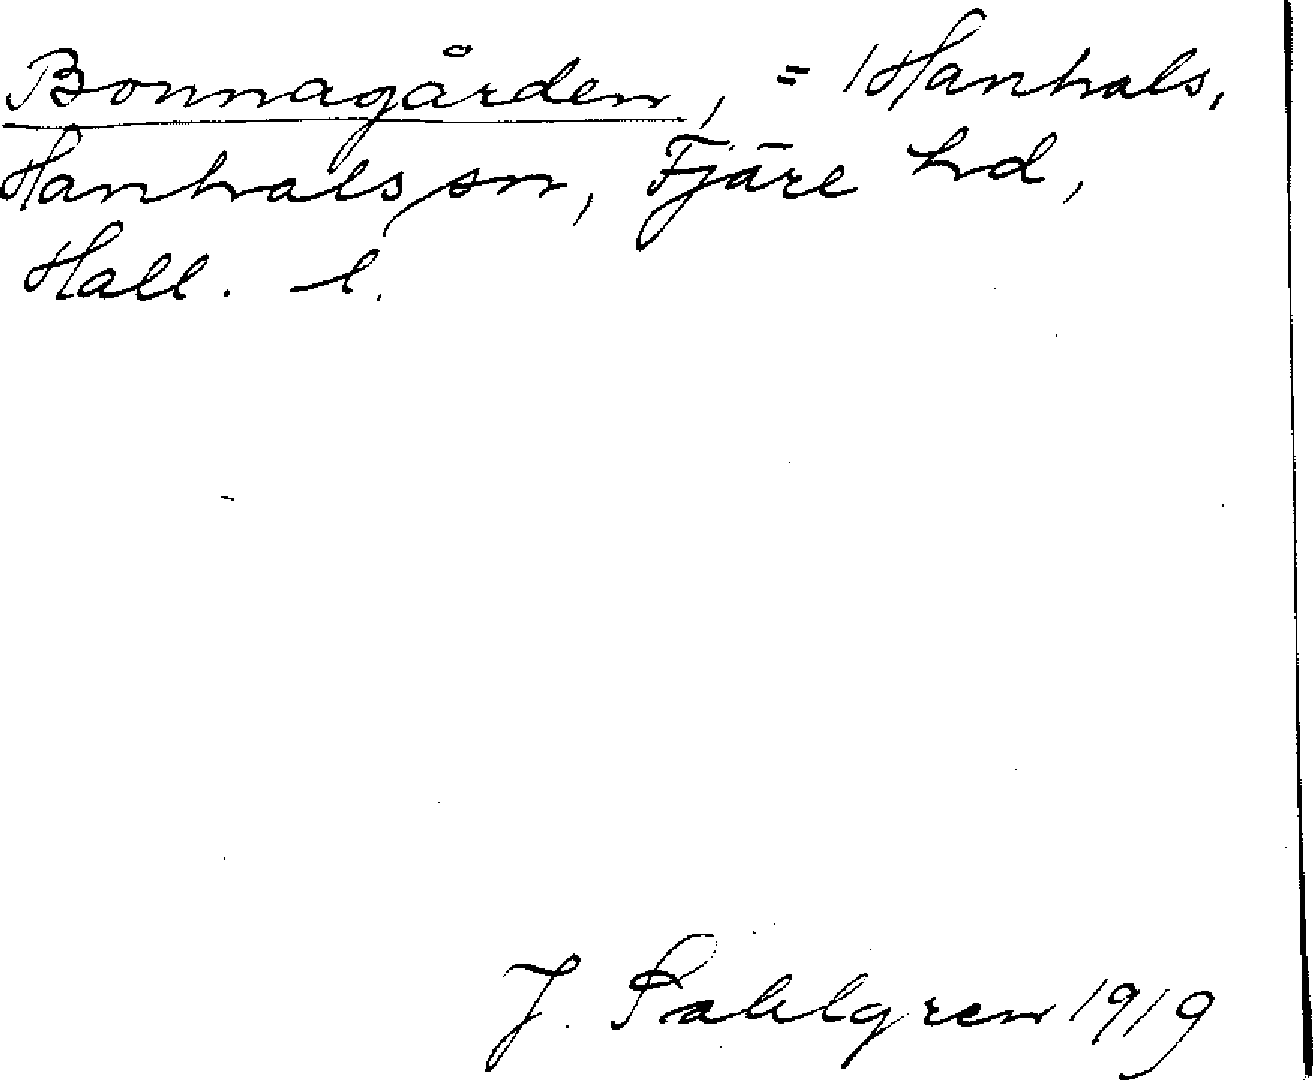 Bonnagården, = 1 Hanhals,
Hanhals sn, Fjäre hd,
Hall. l.
J. Sahlgren 1919